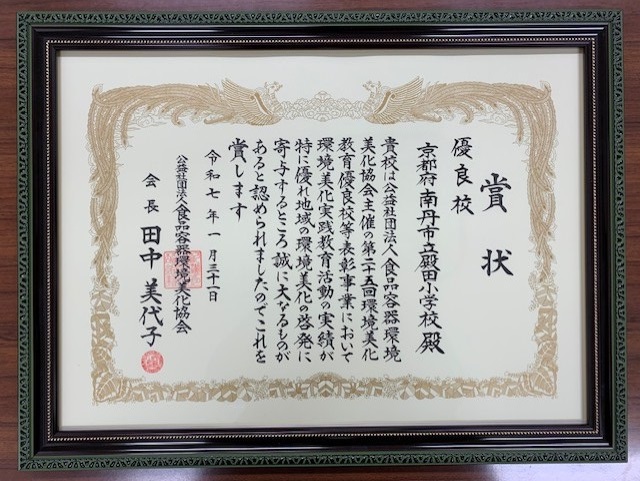 賞状
優良校
京都府南丹市立殿田小学校殿
貴校は公益社団法人食品容器環境
美化協会主催の第二十五回環境美化
教育優良校等表彰事業において
環境美化実践教育活動の実績が
特に優れ地域の環境美化の啓発に
寄与するところ誠に大なるものが
あると認められましたのでこれを
賞します
令和七年一月三十一日
公益社団法人食品容器環境美化協会
会長 田中美代子